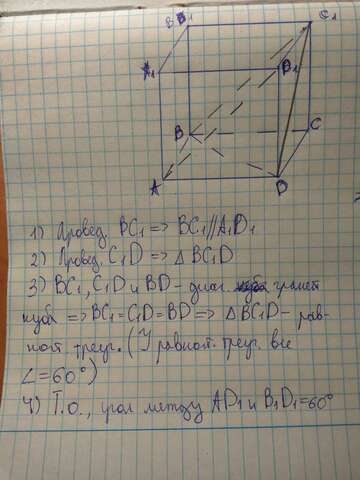 B B1 C1
A1 D1
B C
A D
1) Провед. BC1 => BC1 // A1D1
2) Провед. C1D => △ BC1D
3) BC1, C1D и BD - диаг. граней
куба => BC1 = C1D = BD => △ BC1D - рав-
ност. треуг. (У равност. треуг. все
∠ = 60°)
4) Т.о., угол между AD1 и B1D1 = 60°